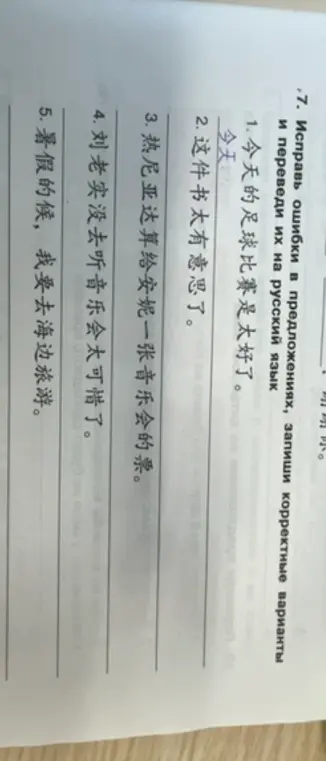 谢谢你。
7. Исправь ошибки в предложениях, запиши корректные варианты
и переведи их на русский язык
1. 今天的足球比赛是太好了。
今天
2. 这件书太有意思了。
3. 热尼亚达算给安妮一张音乐会的票。
4. 刘老实没去听音乐会太可惜了。
5. 暑假的候，我要去海边旅游。